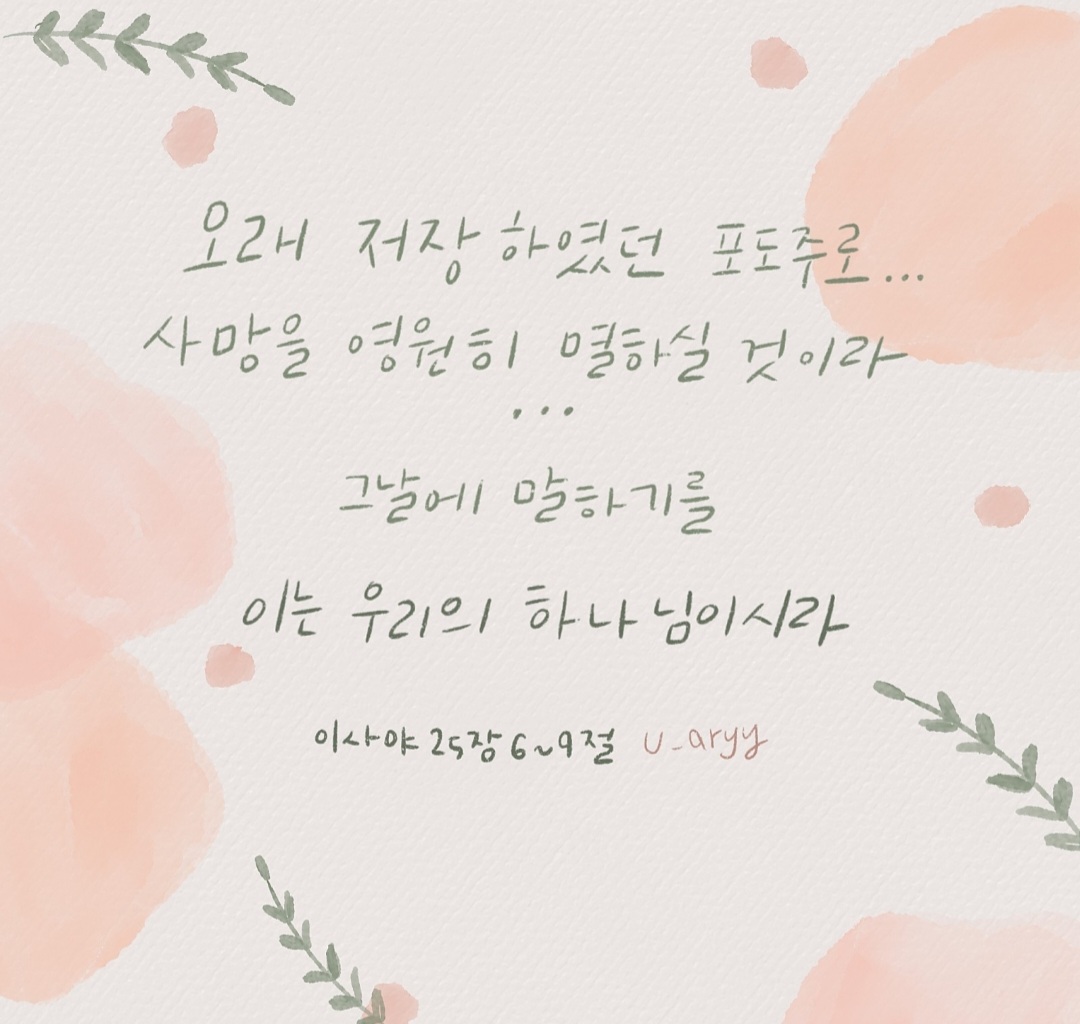 오래 저장하였던 포도주로...
사망을 영원히 멸하실 것이라
...
그날에 말하기를
이는 우리의 하나님이시라
이사야 25장 6~9절 u_aryy